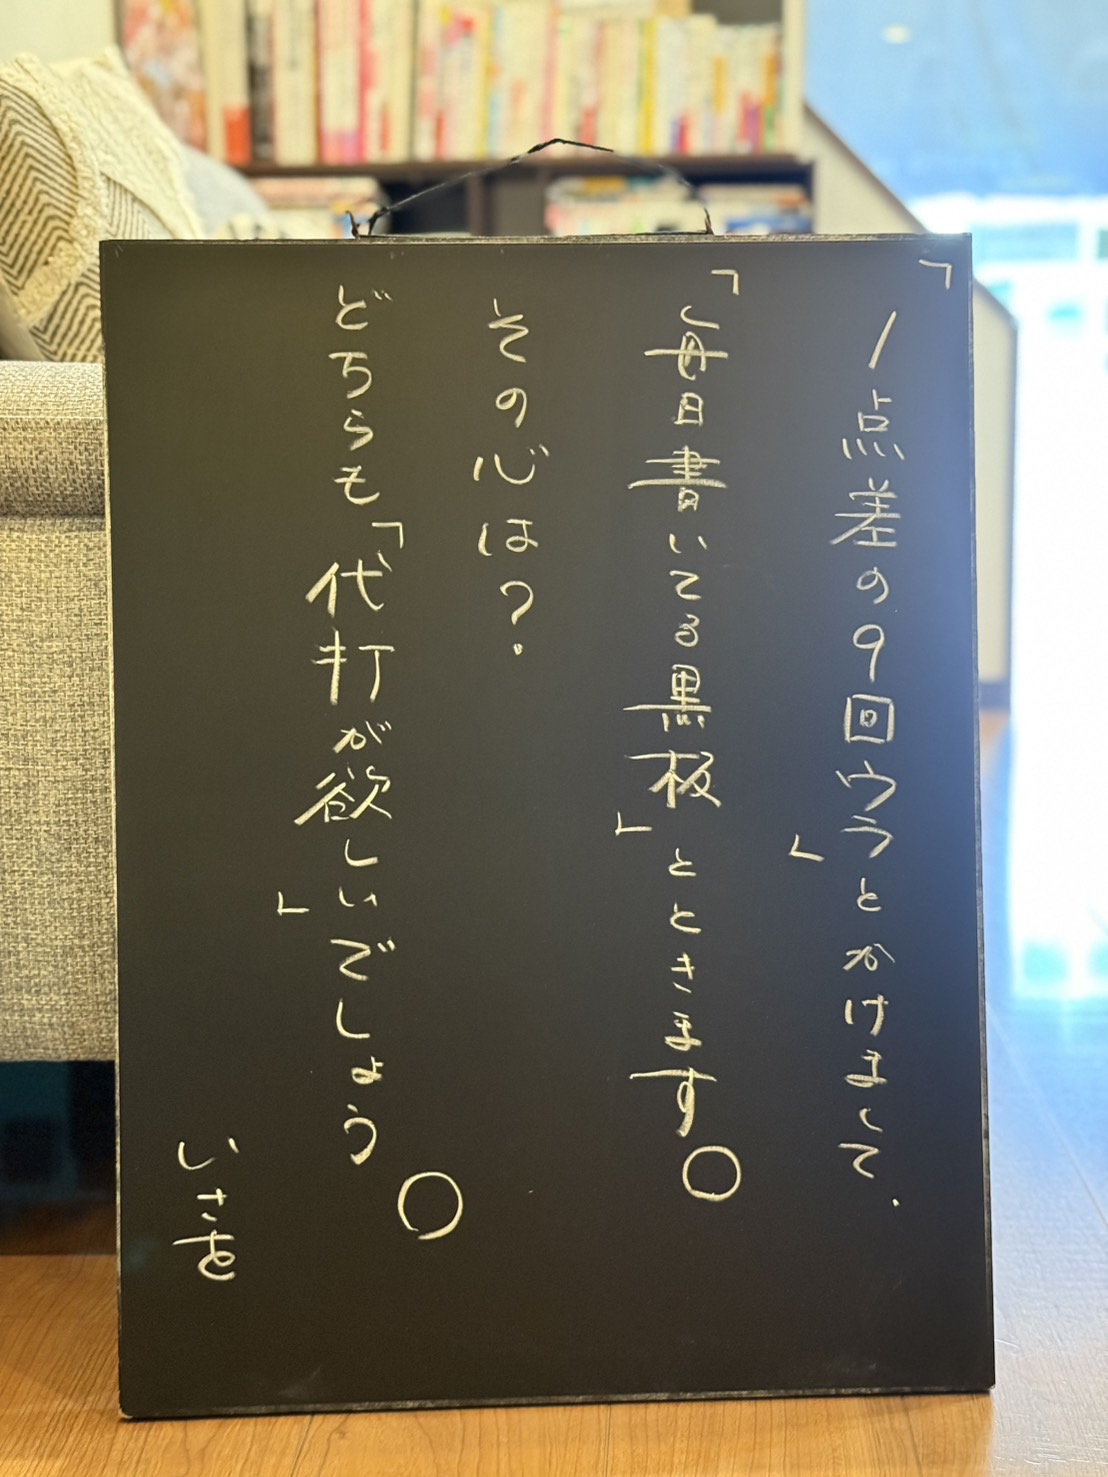 「1点差の9回ウラ」とかけまして、
「毎日書いてる黒板」とときます。
その心は？
どちらも「代打が欲しいでしょう」。
いさを